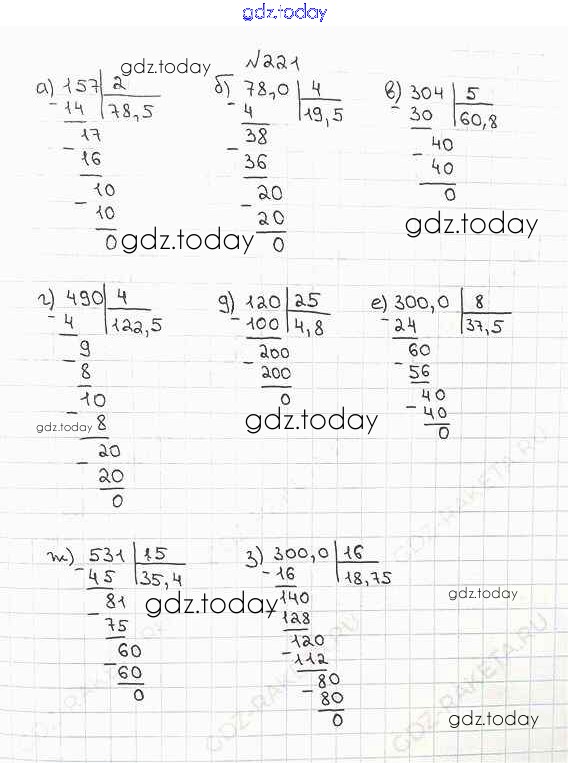 gdz.today
№221
gdz.today
а) 157 | 2
- 14 | 78,5
17
- 16
10
- 10
0
б) 78,0 | 4
- 4 | 19,5
38
- 36
20
- 20
0
в) 304 | 5
- 30 | 60,8
40
- 40
0
gdz.today
gdz.today
г) 490 | 4
- 4 | 122,5
9
- 8
10
- 8
20
- 20
0
д) 120 | 25
- 100 | 4,8
200
- 200
0
е) 300,0 | 8
- 24 | 37,5
60
- 56
40
- 40
0
gdz.today
gdz.today
GDZ-RAKETA.RU
ж) 531 | 15
- 45 | 35,4
81
- 75
60
- 60
0
з) 300,0 | 16
- 16 | 18,75
140
- 128
120
- 112
80
- 80
0
gdz.today
gdz.today
gdz.today
GDZ-RAKETA.RU
GDZ-RAKETA.RU